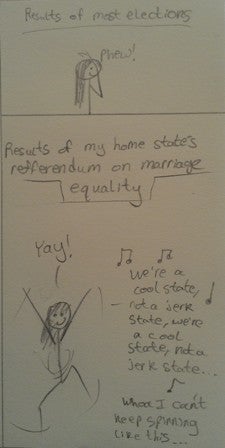 Results of most elections
Phew!
Results of my home state's
refferendum on marriage
equality
Yay!
We're a
cool state,
not a jerk
state, we're
a cool
state, not a
jerk state...
whoa I can't
keep spinning
like this...